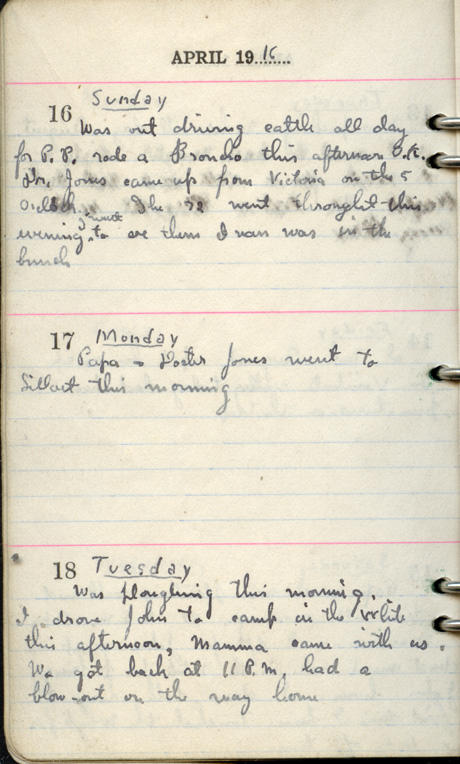 APRIL 1916
16 Sunday
Was out driving cattle all day
for P.P. rode a Broncho this afternoon O.K.
Dr. Jones came up from Victoria on the 5
The 72 went throught this
evening. I went to see them Ivan was in the
bunch
17 Monday
Papa Doctor Jones went to
this morning
18 Tuesday
Was ploughing this morning.
I drove John to camp in the
this afternoon, Mamma came with us.
We got back at 11 P.M. had a
blow-out on the way home